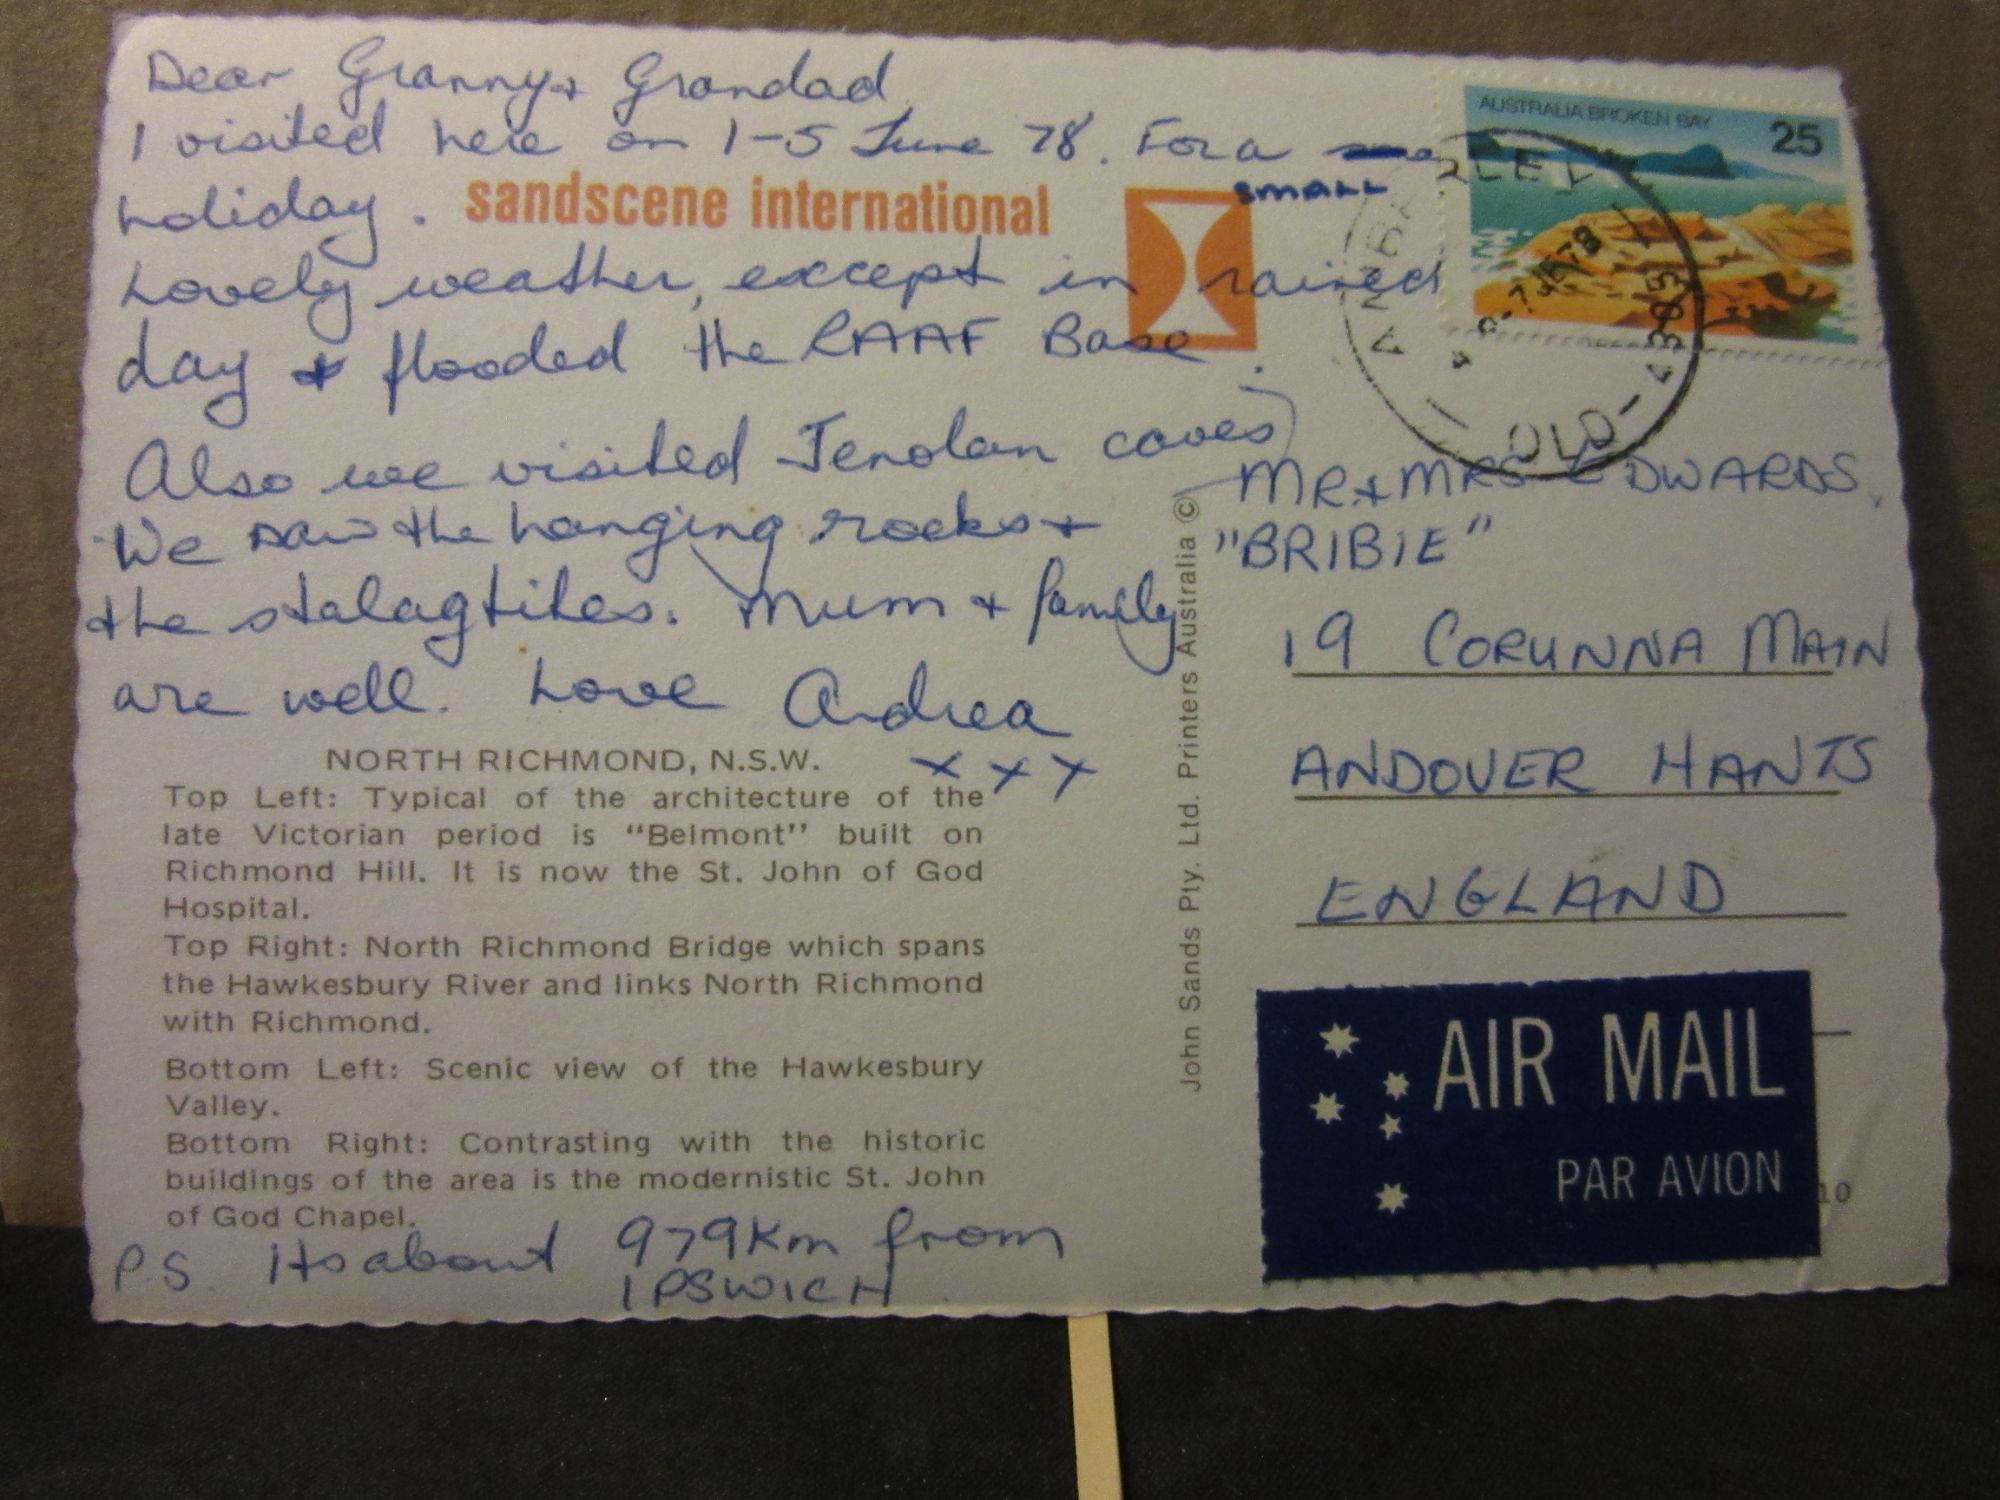 Dear Granny + Grandad
I visited here on 1-5 June 78. For a
SMALL
holiday.
sandscene international
Lovely weather, except in rained
day + flooded the RAAF Base.
Also we visited Jenolan caves
We saw the hanging rocks +
the stalagtiles. Mum + family
are well. Love Andrea
x x x
NORTH RICHMOND, N.S.W.
Top Left: Typical of the architecture of the
late Victorian period is “Belmont” built on
Richmond Hill. It is now the St. John of God
Hospital.
Top Right: North Richmond Bridge which spans
the Hawkesbury River and links North Richmond
with Richmond.
Bottom Left: Scenic view of the Hawkesbury
Valley.
Bottom Right: Contrasting with the historic
buildings of the area is the modernistic St. John
of God Chapel.
P.S. Its about 979Km from
IPSWICH
John Sands Pty. Ltd. Printers Australia ©
AUSTRALIA BROKEN BAY
25
7 JE 78
QLD - 4305
MR + MRS EDWARDS,
"BRIBIE"
19 CORUNNA MAIN
ANDOVER HANTS
ENGLAND
AIR MAIL
PAR AVION
10